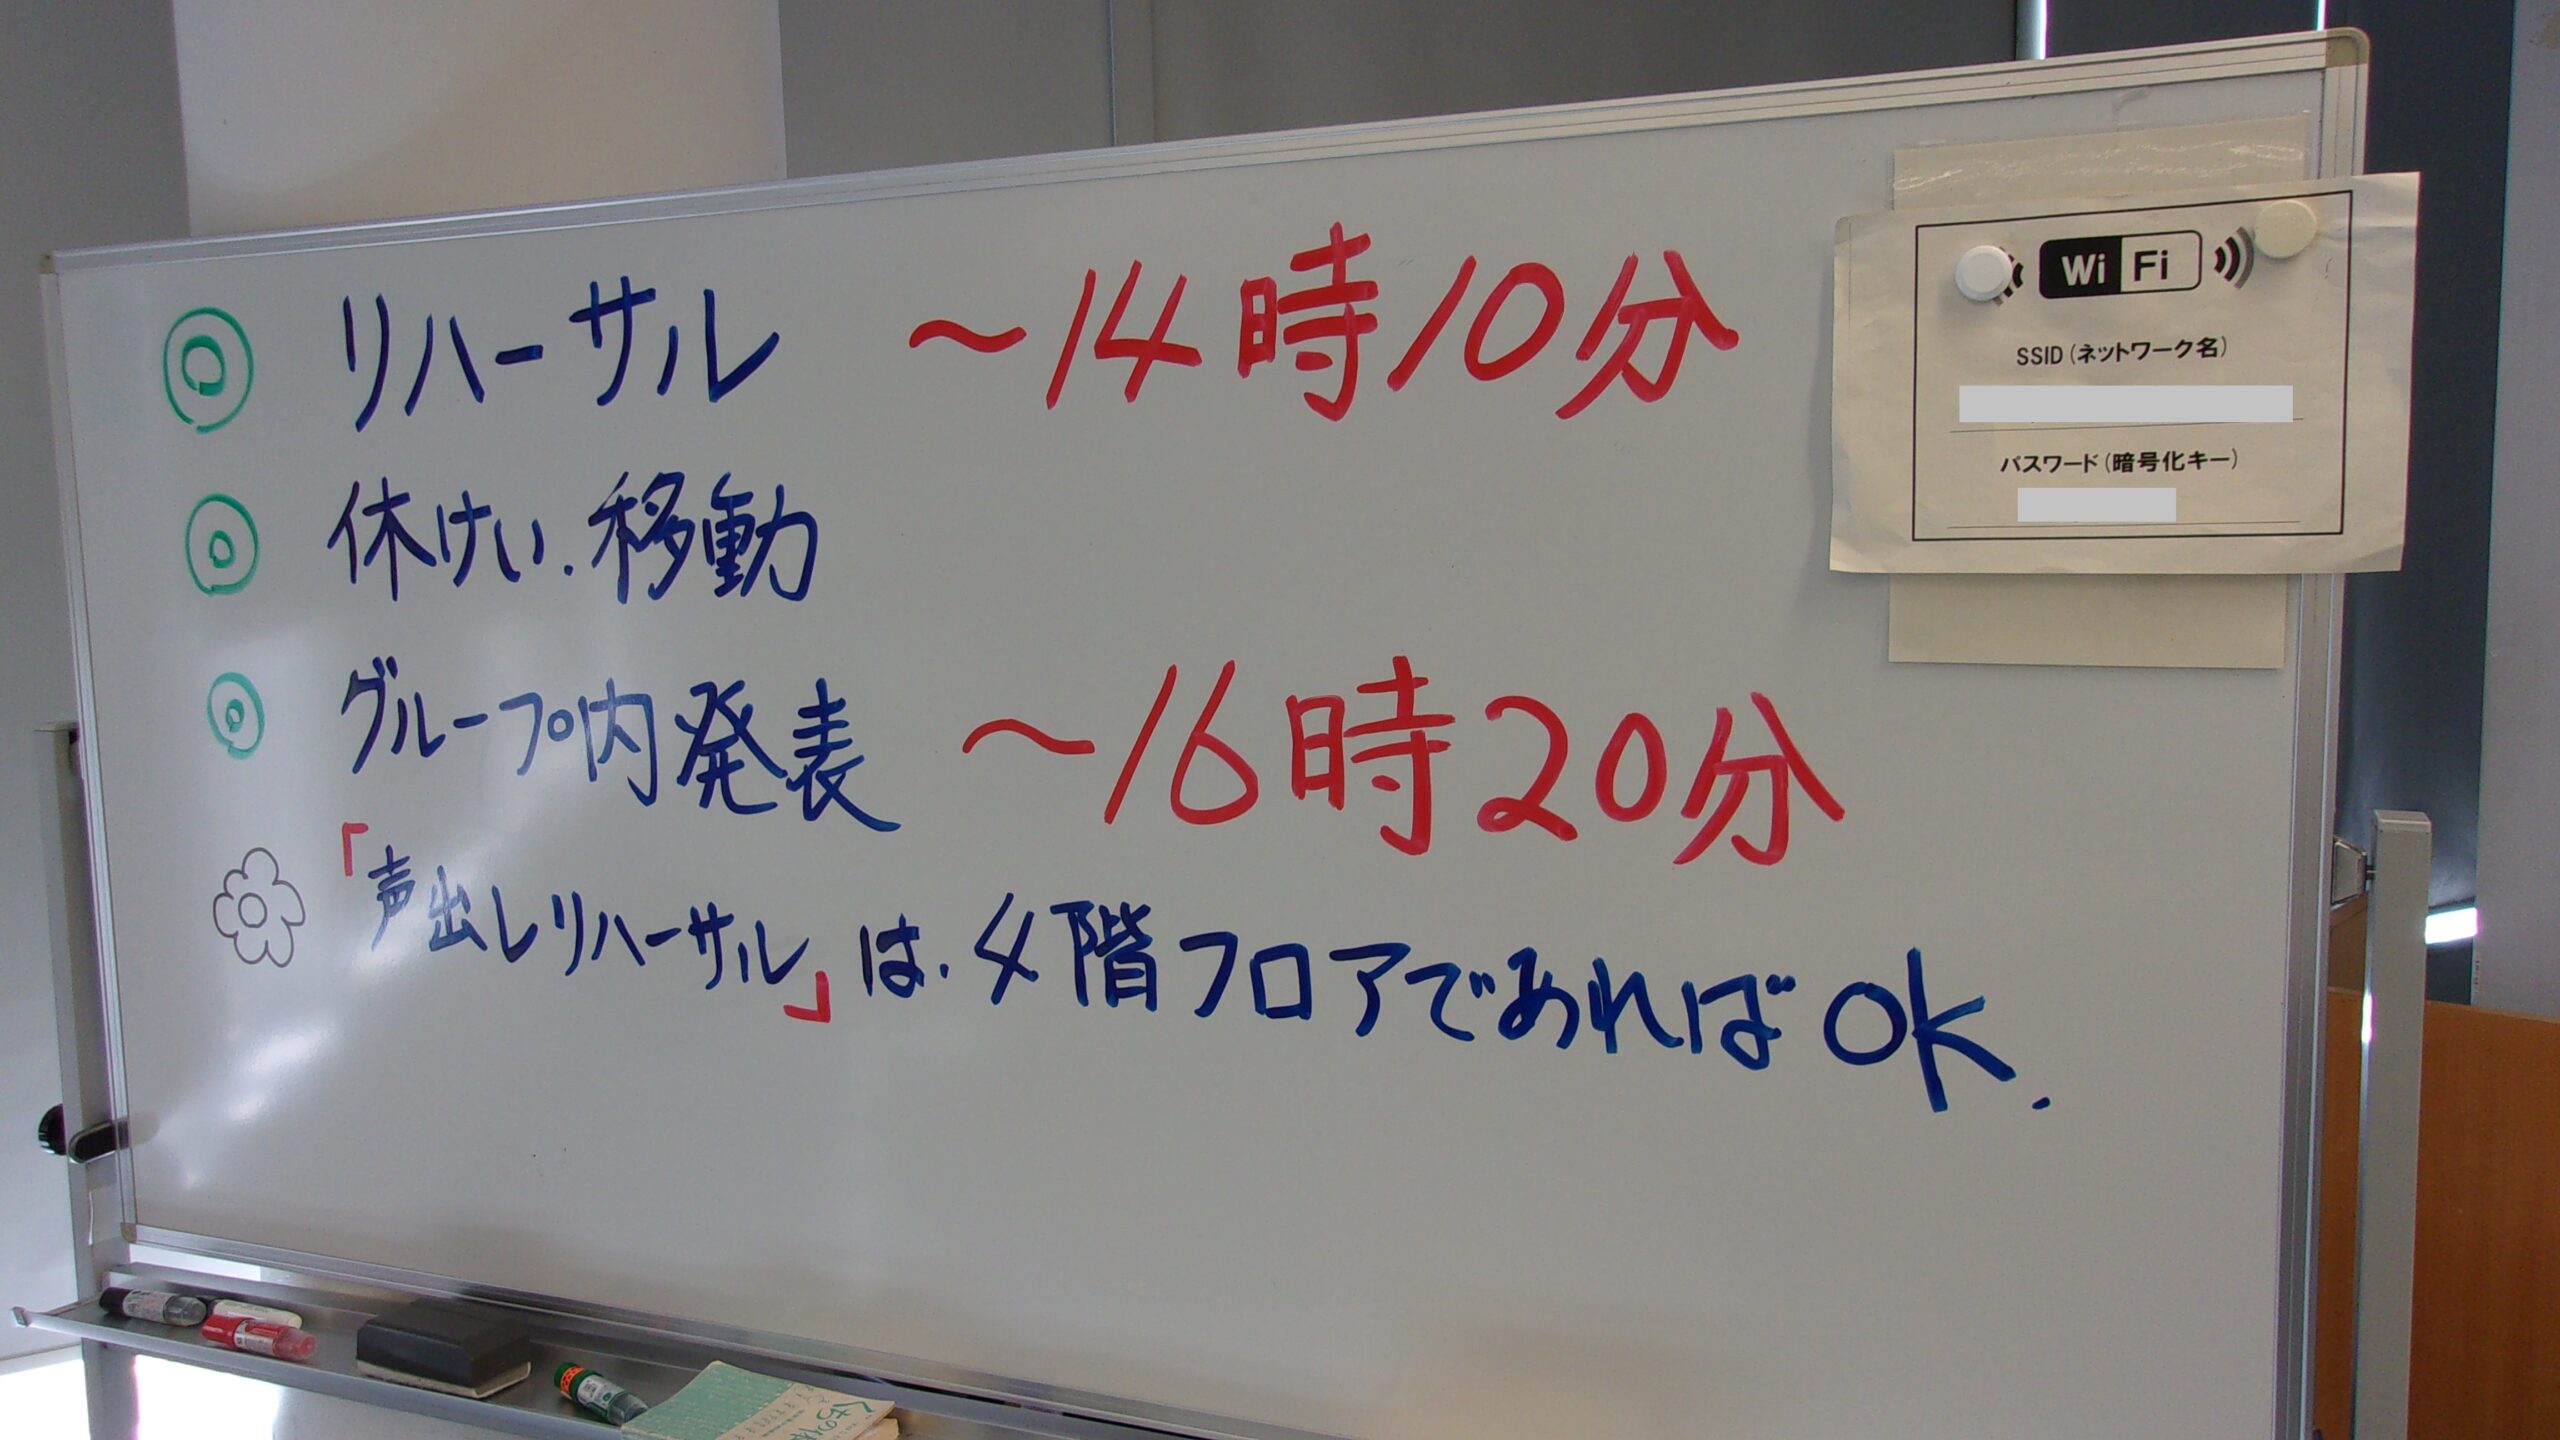 ◎ リハーサル ～14時10分
◎ 休けい.移動
◎ グループ内発表 ～16時20分
「声出しリハーサル」は、4階フロアであればOK.
Wi Fi
SSID(ネットワーク名)
パスワード(暗号化キー)